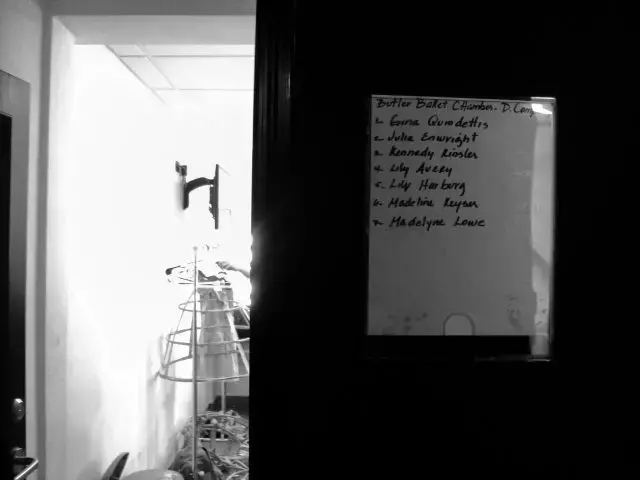 Butler Ballet Chamber. D. Comp
1. Emma Quindettis
2. Julia Enwright
3. Kennedy Kinsler
4. Lily Avery
5. Lily Harberg
6. Madeline Keyser
7. Madelyne Lowe